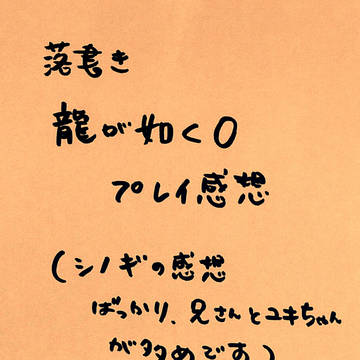 落書き
龍が如く0
プレイ感想
(シノギの感想
ばっかり、兄さんとユキちゃん
が多めです)